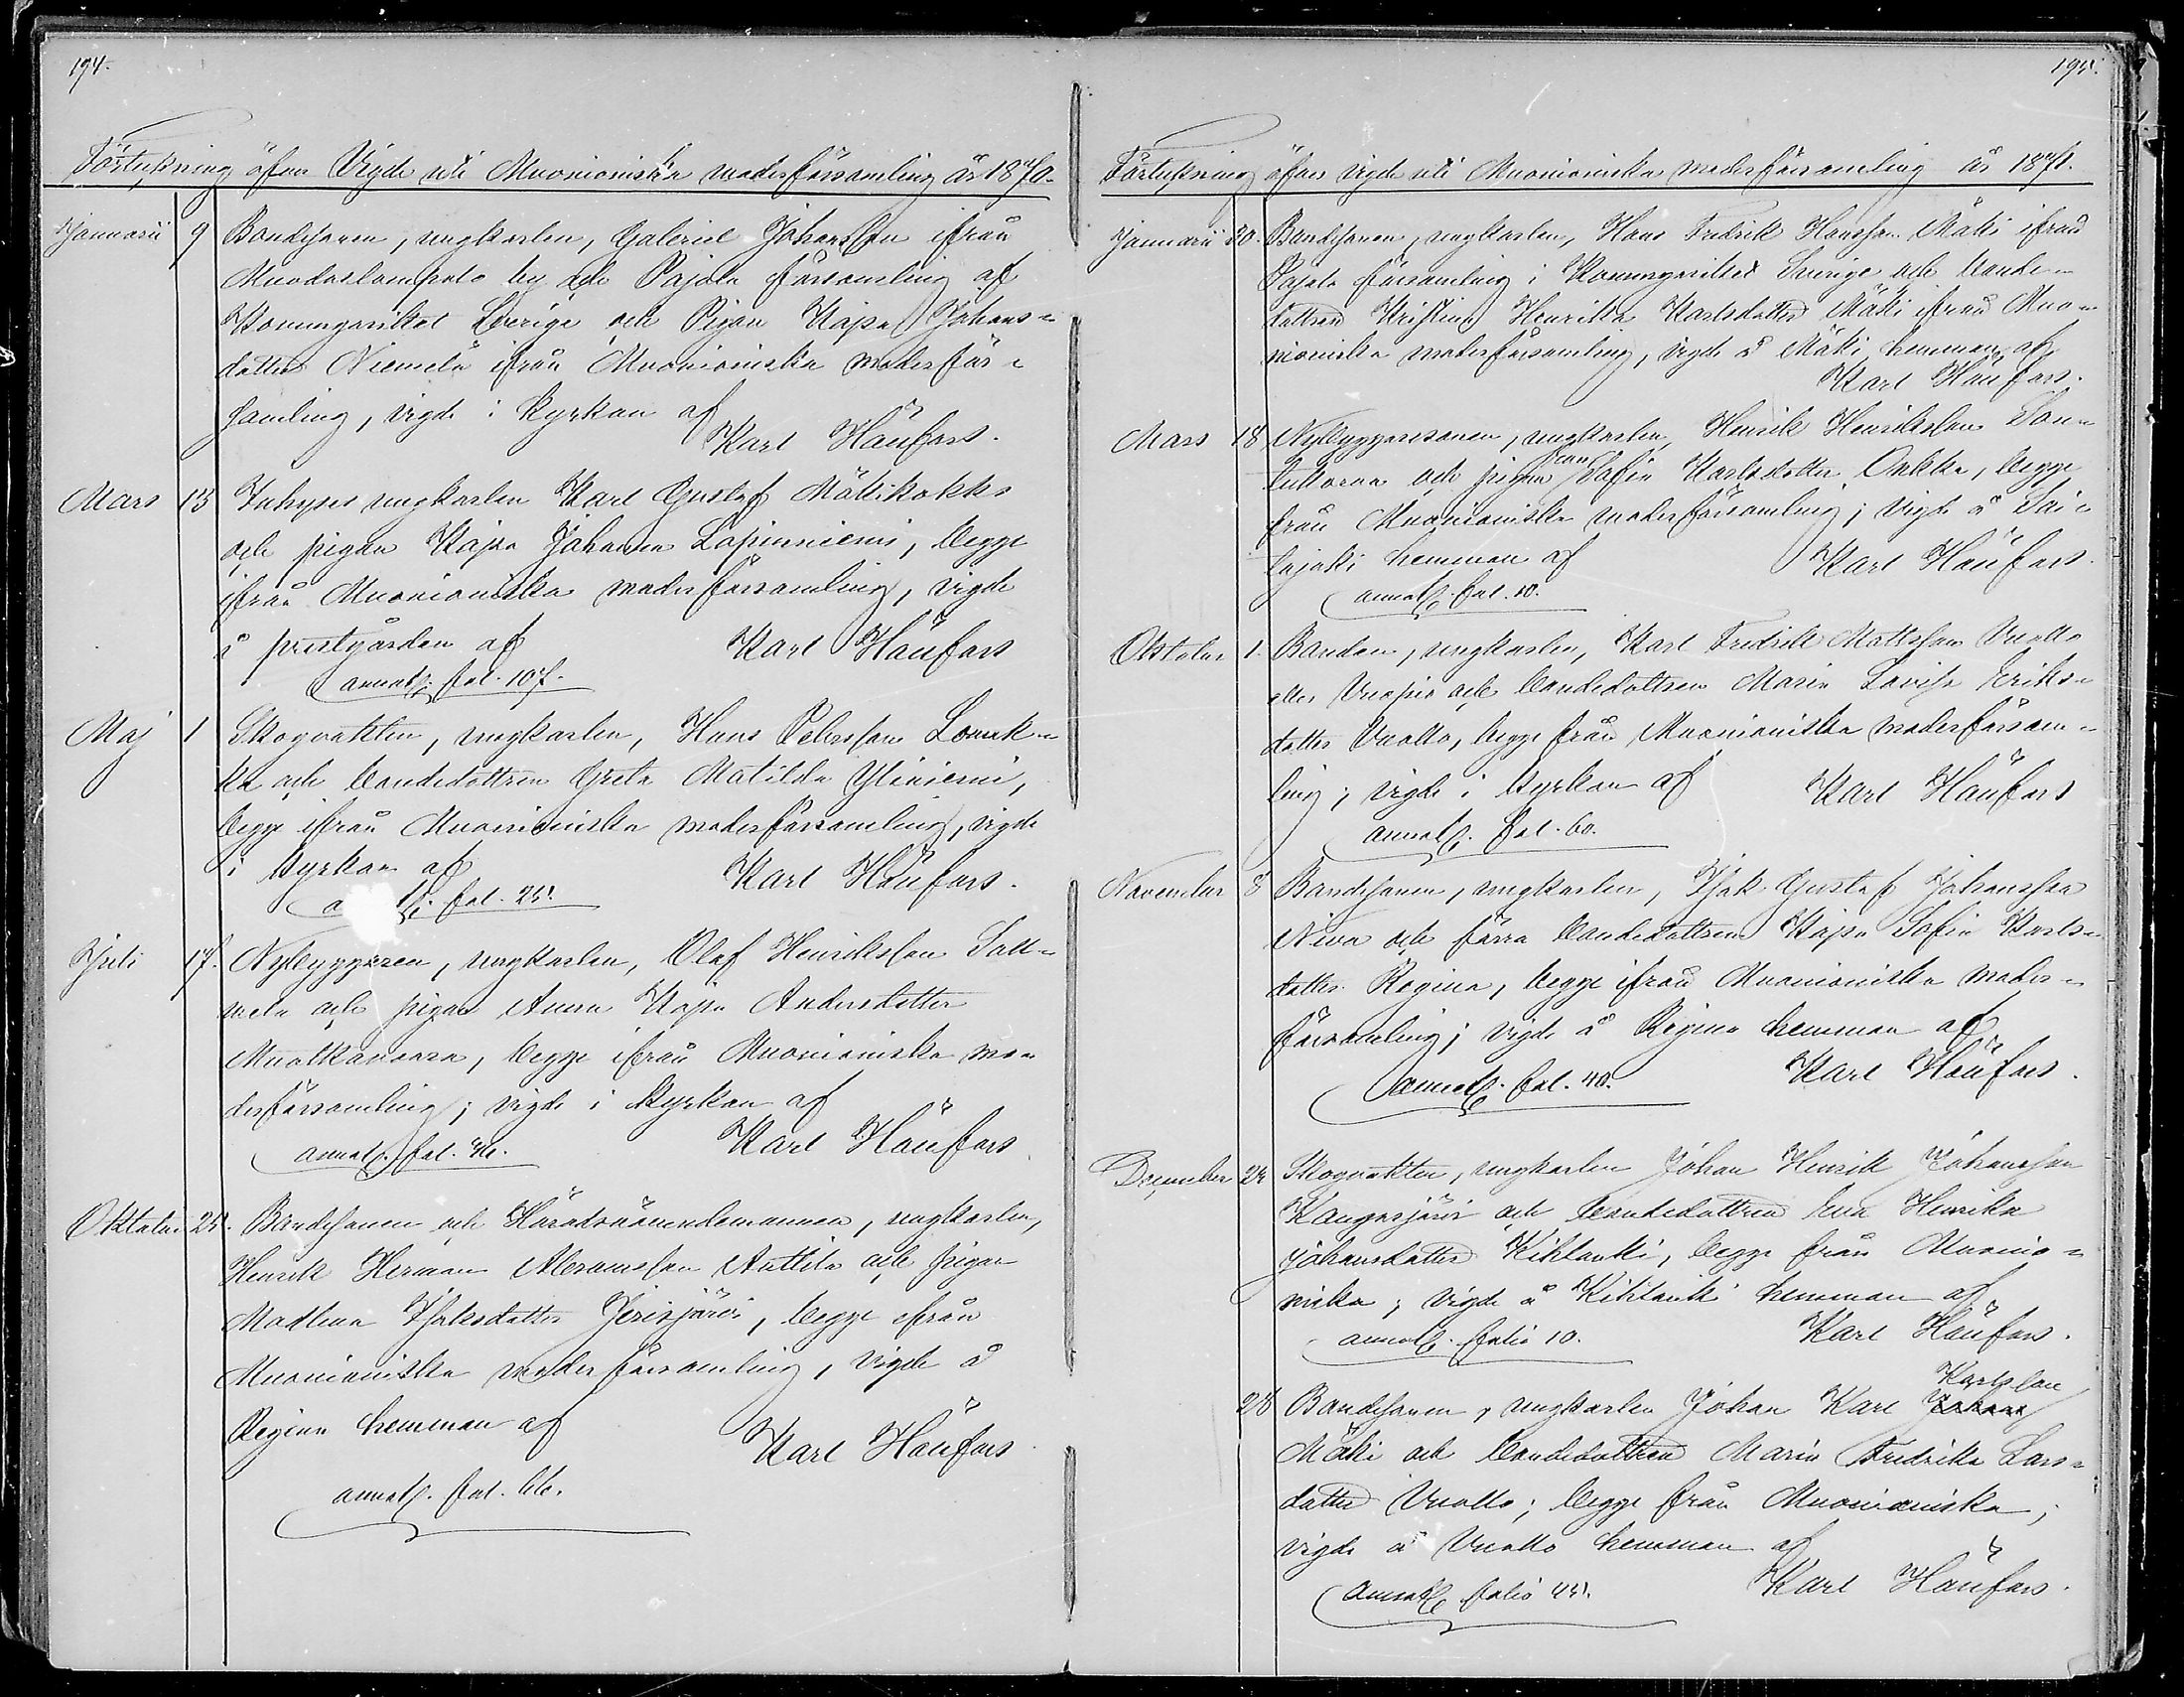 194.
Förteckning öfver Vigde uti Muonioniska moderförsamling år 1870.
Januarii 9 Bondesonen, ungkarlen, Gabriel Johansson ifrån
Muodoslompolo by och Pajala församling af
Konungariket Sverige och Pigan Kajsa Johans-
dotter Niemelä ifrån Muonioniska moderför-
samling, vigde i kyrkan af
Karl Hänfors.
Mars 13 Inhyses ungkarlen Karl Gustaf Mäkikokko
och pigan Kajsa Johanna Lapinniemi, begge
ifrån Muonioniska moderförsamling, vigde
å prestgården af Karl Hänfors
annot. fol. 107.
Maj 1 Skogvakten, ungkarlen, Hans Petersson Lomak-
ka och bondedottren Greta Matilda Yliniemi,
begge ifrån Muonioniska moderförsamling, vigde
i kyrkan af Karl Hänfors.
fol. 25.
Juli 17. Nybyggaren, ungkarlen, Olof Henriksson
och pigan Anna Kajsa Andersdotter
Muotkavaara, begge ifrån Muonioniska mo-
derförsamling; vigde i kyrkan af
annot. fol. Karl Hänfors.
Oktober 25. Bondesonen och Häradsnämndemannen, ungkarlen,
Henrik Herman Abramsson Anttila och pigan
Madlena Isaksdotter Jerisjärvi, begge ifrån
Muonioniska moderförsamling, vigde å
Regina hemman af Karl Hänfors
annot. fol. 66.
195.
Förteckning öfver vigde uti Muonioniska moderförsamling år 1871.
Januarii 20. Bondesonen, ungkarlen, Hans Fredrik Hansson Mäki ifrån
Pajala församling i Konungariket Sverige och bonde-
dottren Kristina Henrika Karlsdotter Mäki ifrån Muo-
nioniska moderförsamling, vigde å Mäki hemman af
Karl Hänfors.
Mars 18 Nybyggaresonen, ungkarlen, Henrik Henriksson
och pigan Sofia Karlsdotter begge
från Muonioniska moderförsamling; vigde å
hemman af Karl Hänfors.
annot. fol. 10.
Oktober 1. Bonden, ungkarlen, Karl Fredrik Mattsson Vuollo
eller Vuopio och bondedottren Maria Lovisa Eriks-
dotter Vuollo, begge från Muonioniska moderförsam-
ling; vigde i kyrkan af Karl Hänfors
annot. fol. 60.
November 8 Bondesonen, ungkarlen, Isak Gustaf Johansson
Niva och förra bondedottren Kajsa Sofia Karls-
dotter Regina, begge ifrån Muonioniska moder-
församling; vigde å Regina hemman af
annot. fol. 40. Karl Hänfors.
December 24 Skogvakten, ungkarlen Johan Henrik Johansson
Kangosjärvi och bondedottren Eva Henrika
Johansdotter Kihlanki, begge från Muonio-
niska; vigde å Kihlanki hemman af
annot. folio 10. Karl Hänfors.
26 Bondesonen, ungkarlen Johan Karl Karlsson
Mäki och bondedottren Maria Fredrika Lars-
dotter Vuollo; begge från Muonioniska;
vigde å Vuollo hemman af
annot. folio 45. Karl Hänfors.